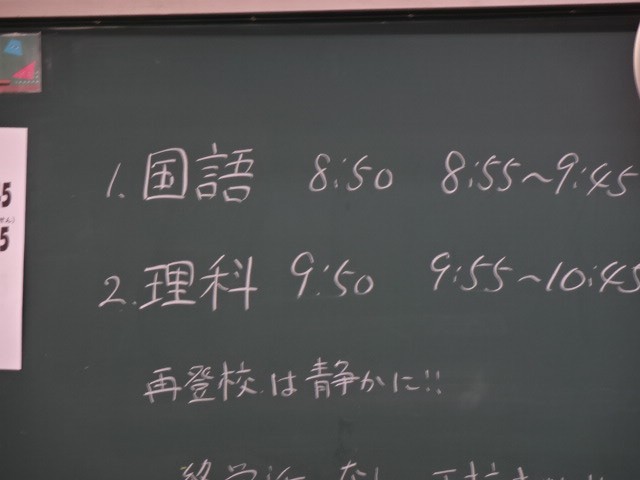 1. 国語 8:50 8:55~9:45
2. 理科 9:50 9:55~10:45
再登校は静かに!!
5
5